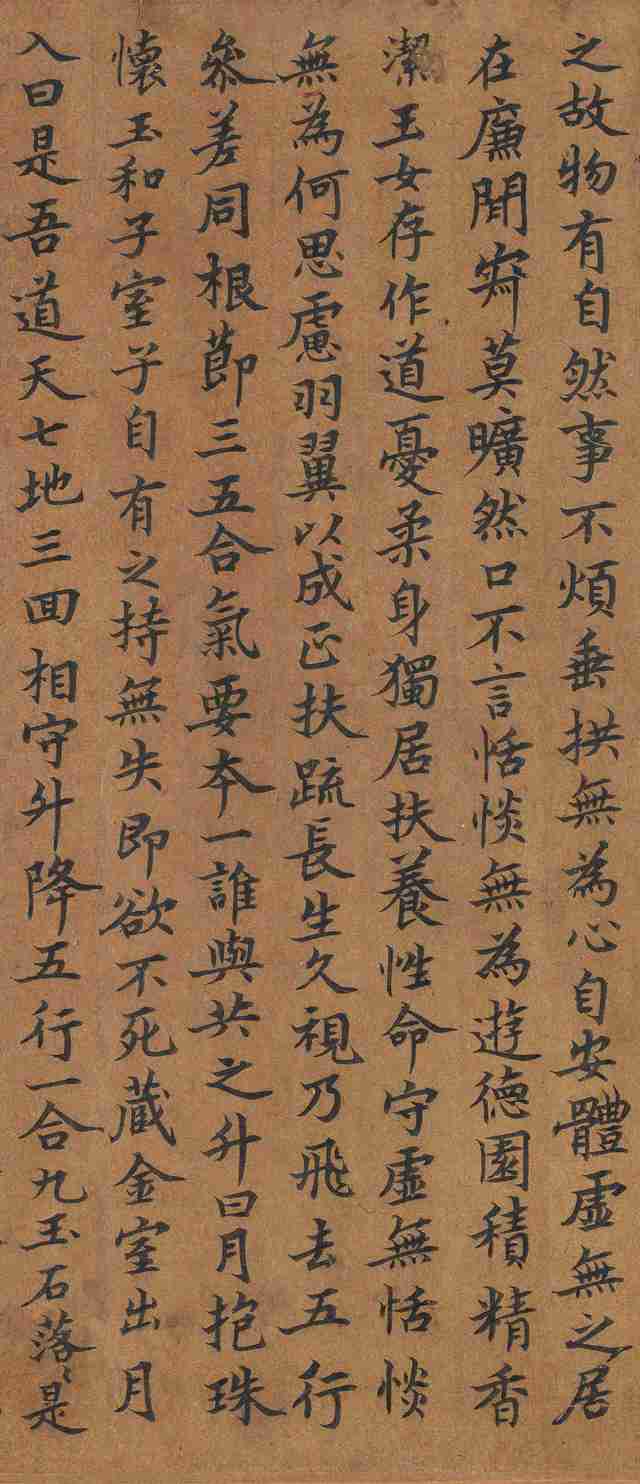 之故物有自然事不煩垂拱無為心自安體虛無之居
在廉閒寂莫曠然口不言恬惔無為遊德園積精香
潔玉女存作道憂柔身獨居扶養性命守虛無恬惔
無為何思慮羽翼以成正扶疏長生久視乃飛去五行
參差同根莭三五合氣要本一誰與共之升日月抱珠
懷玉和子室子自有之持無失即欲不死藏金室出月
入日是吾道天七地三回相守升降五行一合九玉石落〻是